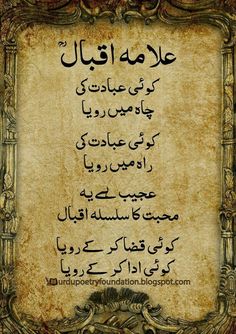 علامہ اقبالؒ
کوئی عبادت کی
چاہ میں رویا
کوئی عبادت کی
راہ میں رویا
عجیب ہے یہ
محبت کا سلسلہ اقبال
کوئی قضا کر کے رویا
کوئی ادا کر کے رویا
urdupoetryfoundation.blogspot.com